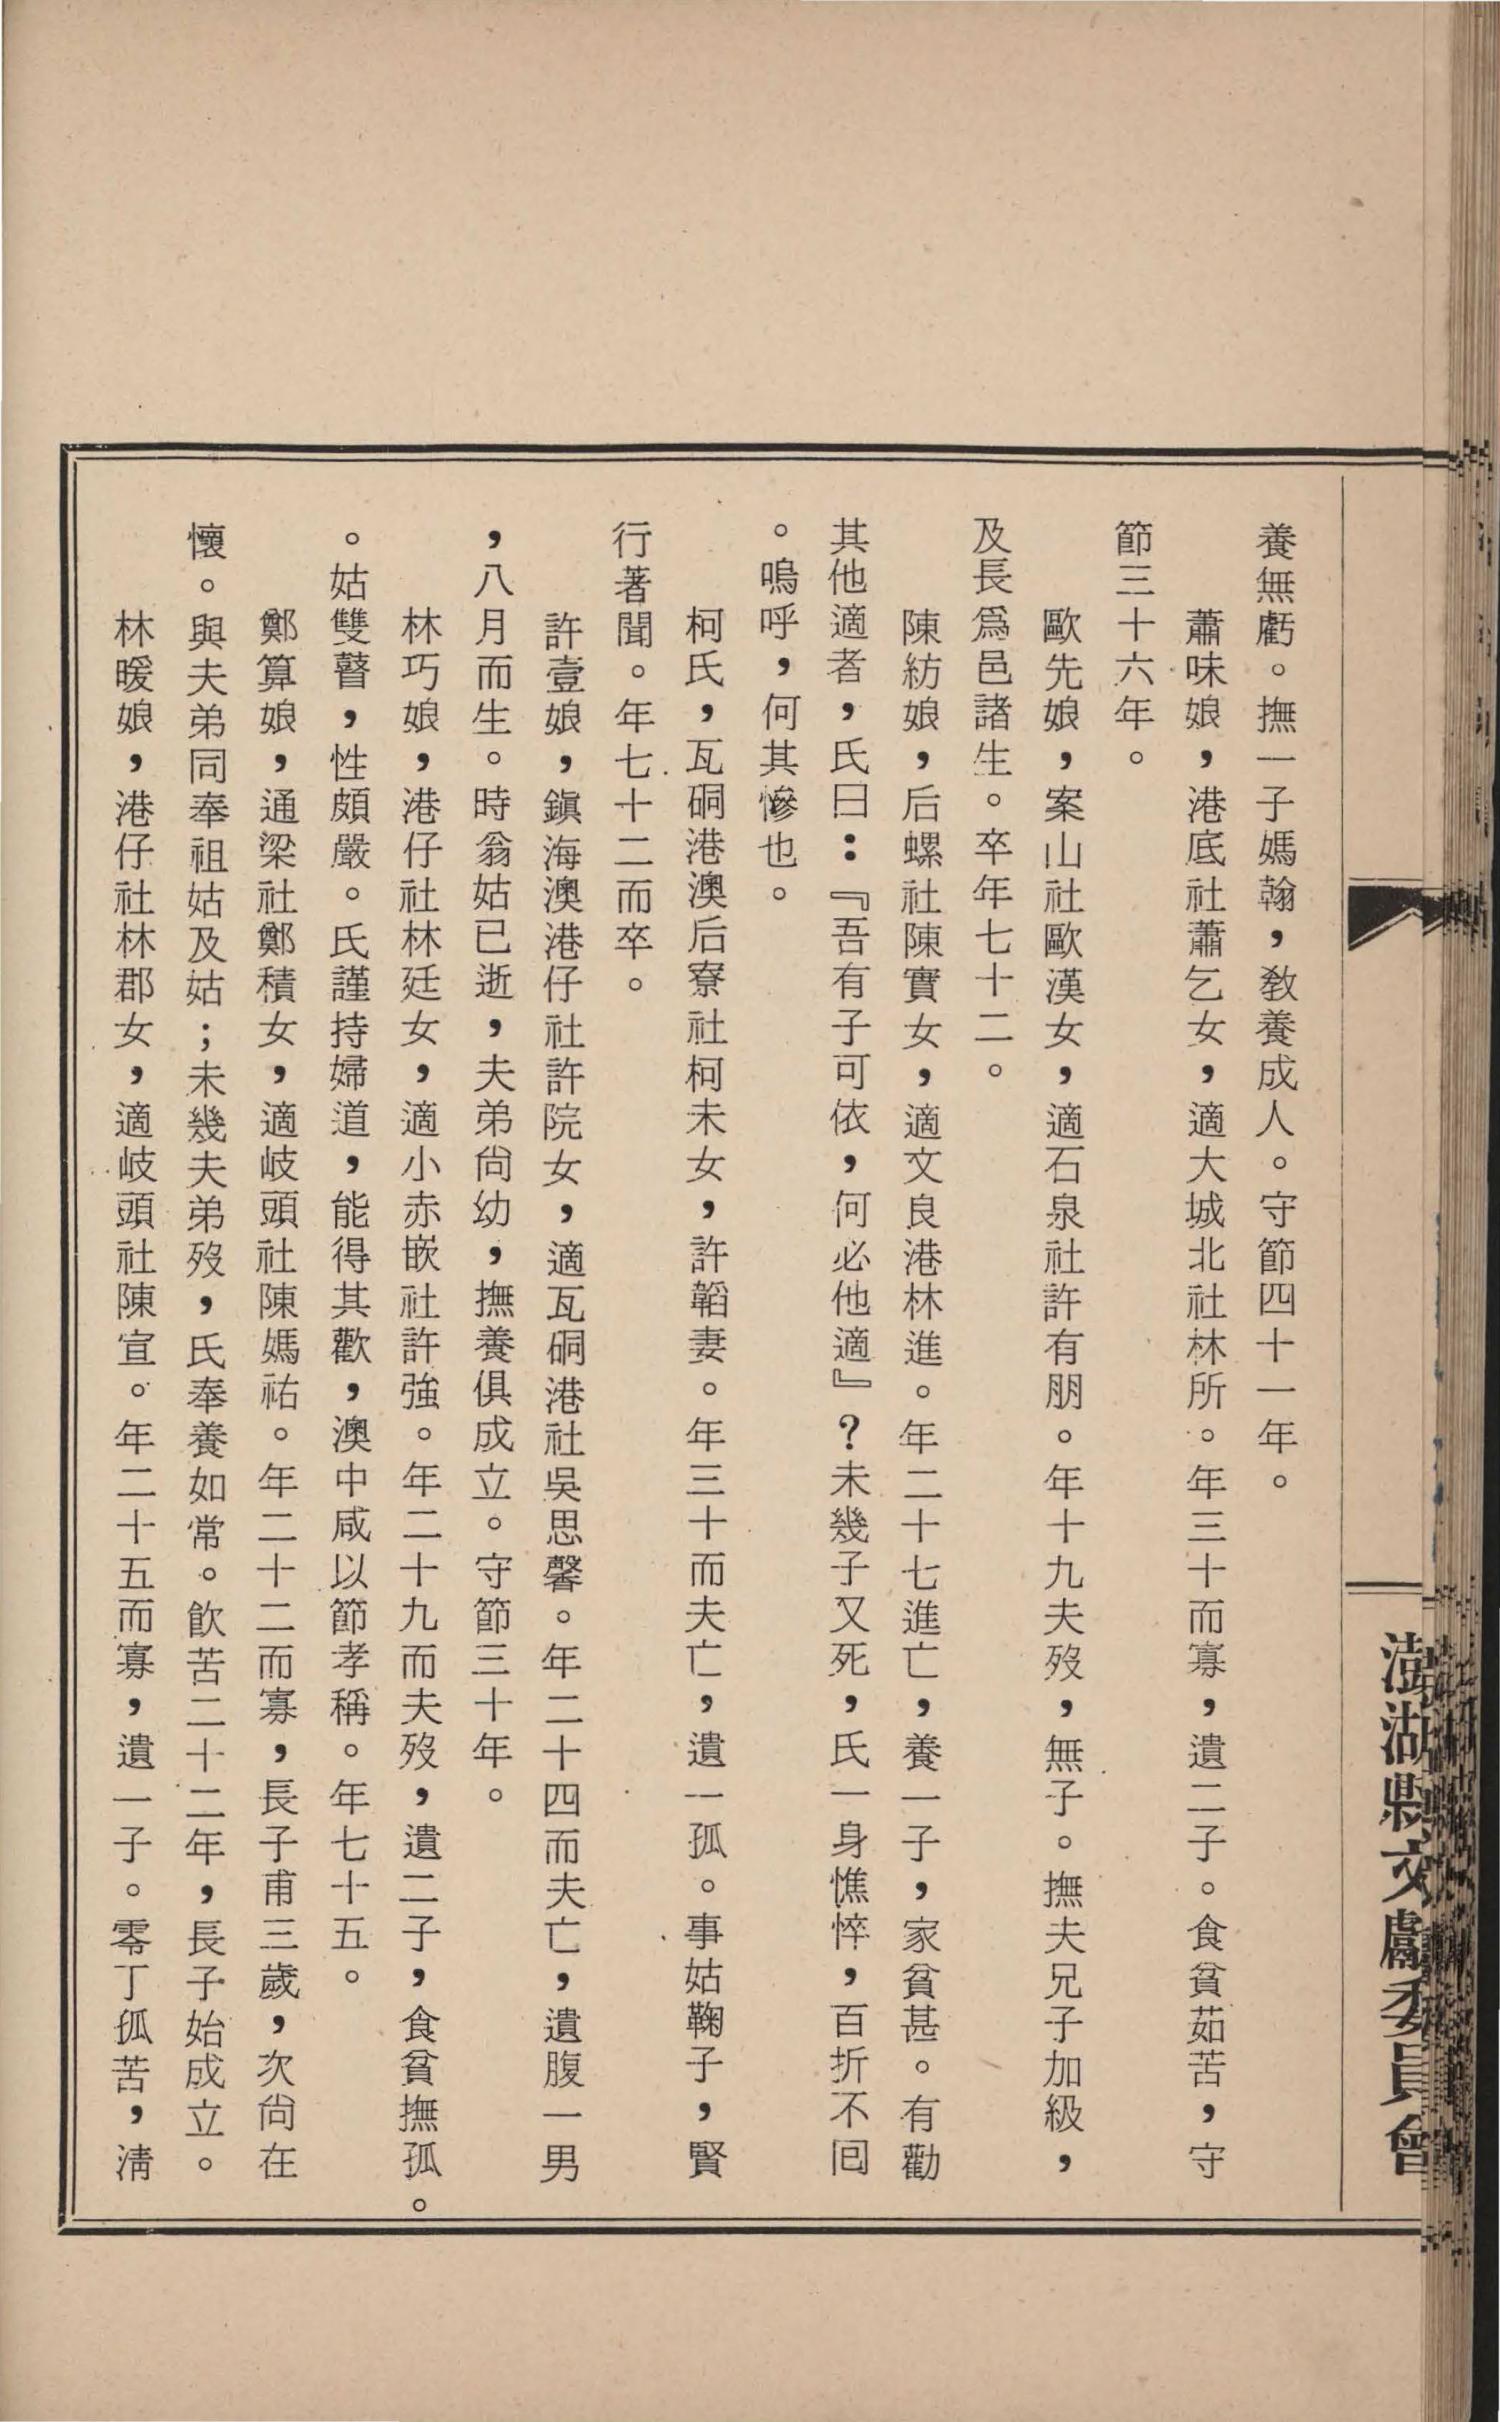 養無虧。撫一子媽翰，敎養成人。守節四十一年。
蕭味娘，港底社蕭乞女，適大城北社林所。年三十而寡，遺二子。食貧茹苦，守
節三十六年。
歐先娘，案山社歐漢女，適石泉社許有朋。年十九夫歿，無子。撫夫兄子加級，
及長爲邑諸生。卒年七十二。
陳紡娘，后螺社陳實女，適文良港林進。年二十七進亡，養一子，家貧甚。有勸
其他適者，氏曰：『吾有子可依，何必他適』？未幾子又死，氏一身憔悴，百折不囘
。嗚呼，何其慘也。
柯氏，瓦硐港澳后寮社柯未女，許韜妻。年三十而夫亡，遺一孤。事姑鞠子，賢
行著聞。年七十二而卒。
許壹娘，鎭海澳港仔社許院女，適瓦硐港社吳思馨。年二十四而夫亡，遺腹一男
，八月而生。時翁姑已逝，夫弟尙幼，撫養俱成立。守節三十年。
林巧娘，港仔社林廷女，適小赤嵌社許強。年二十九而夫歿，遺二子，食貧撫孤。
。姑雙瞽，性頗嚴。氏謹持婦道，能得其歡，澳中咸以節孝稱。年七十五。
鄭算娘，通梁社鄭積女，適岐頭社陳媽祐。年二十二而寡，長子甫三歲，次尙在
懷。與夫弟同奉祖姑及姑；未幾夫弟歿，氏奉養如常。飮苦二十二年，長子始成立。
林暖娘，港仔社林郡女，適岐頭社陳宣。年二十五而寡，遺一子。零丁孤苦，淸
澎湖縣文獻委員會